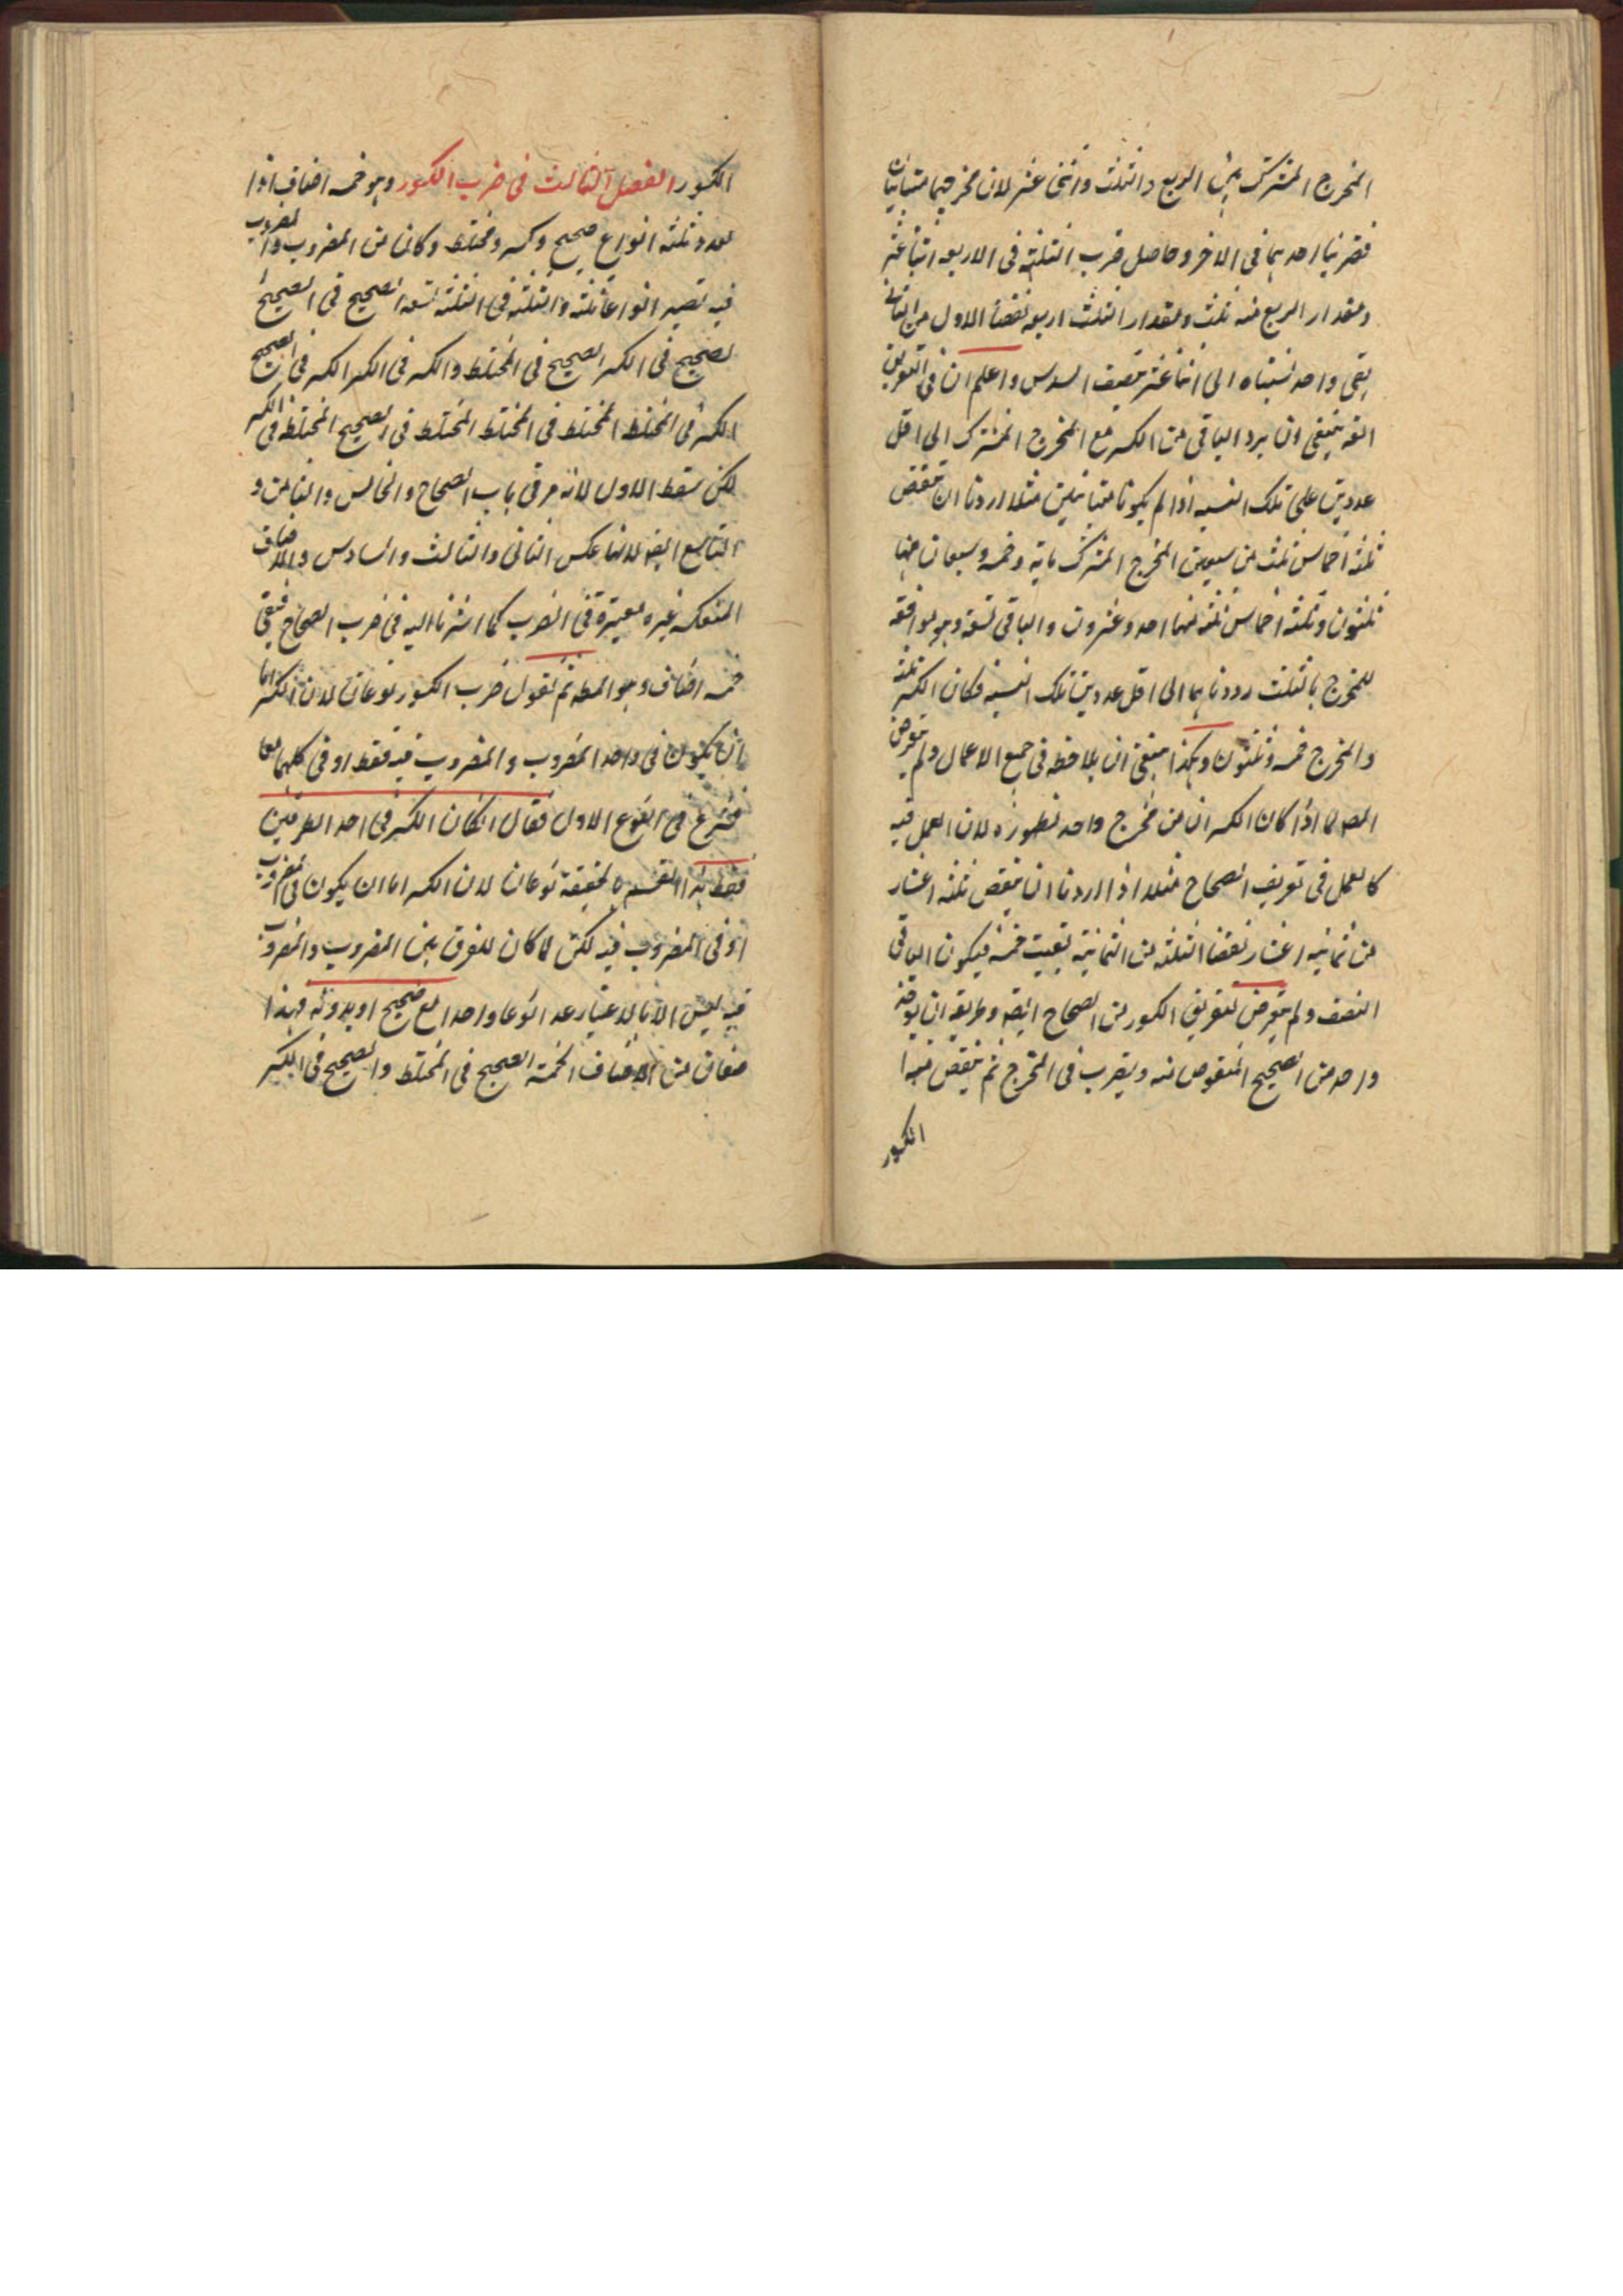 المخرج المشترك بين الربع والثلث واثنى عشر لان مخرجيهما متباينان
فضربنا احدهما فى الاخر وحاصل ضرب الثلثة فى الاربعه اثنا عشر
ومقدار الربع منه ثلث ومقدار الثلث اربعه نقصنا الاول من الثانى
بقى واحد نسبناه الى اثنا عشر نصف السدس واعلم ان فى التفريق
انه ينبغى ان يرد الباقى من الكسر مع المخرج المشترك الى اقل
عددين على تلك النسبه اذا لم يكونا متباينين مثلا اردنا ان ننقص
ثلثه اخماس ثلث من سبعين المخرج المشترك مايه وخمسه وسبعان منها
ثلثون وثلثه اخماس ثلثه منها احد وعشرون والباقى تسعه وهو موافقه
للمخرج بالثلث رددناهما الى اقل عددين تلك النسبه فكان الكسر ثلثه
والمخرج خمسه وثلثون وهكذا ينبغى ان يلاحظ فى جميع الاعمال ولم يتعرض
المص لما اذا كان الكسران من مخرج واحد لظهوره لان العمل فيه
كالعمل فى تفريق الصحاح مثلا اذا اردنا ان ننقص ثلثه اعشار
من ثمانيه اعشار نقصنا الثلثه من الثمانيه بقيت خمسه فيكون الباقى
النصف ولم يتعرض لتفريق الكسور من الصحاح ايضا وطريقه ان يوخذ
واحد من الصحيح المنقوص منه ويضرب فى المخرج ثم ينقص منها
الكسور
الكسور الفصل الثالث فى ضرب الكسور وهو خمسه اصناف اذا
لعدد ثلثه انواع صحيح وكسر ومختلط وكانا من المضروب والمضروب
فيه تصير انواعا ثلثه والثلثه فى الثلثه تسعه الصحيح فى الصحيح
الصحيح فى الكسر الصحيح فى المختلط والكسر فى الكسر الكسر فى الصحيح
الكسر فى المختلط المختلط فى المختلط المختلط فى الصحيح المختلط فى الكسر
لكن سقط الاول لانه مر فى باب الصحاح والخامس والثامن و
التاسع ايضا لانها عكس الثانى والثالث والسادس والاصناف
المنعكسه غير معتبرة فى الضرب كما اشرنا اليه فى ضرب الصحاح فبقى
خمسه اصناف وهو المط ثم نقول ضرب الكسور نوعان لان الكسر اما
ان يكون فى واحد المضروب والمضروب فيه فقط او فى كليهما معا
فشرع فى النوع الاول فقال ان كان الكسر فى احد الطرفين
فقط هذا القسم بالحقيقة نوعان لان الكسر اما ان يكون فى المضروب
او فى المضروب فيه لكن لما كان للفرق بين المضروب والمضروب
فيه ليس الا بالاعتبار عد نوعا واحدا مع صحيح او بدونه فهذا
صنفان من الاصناف الخمسة الصحيح فى المختلط والصحيح فى الكسر